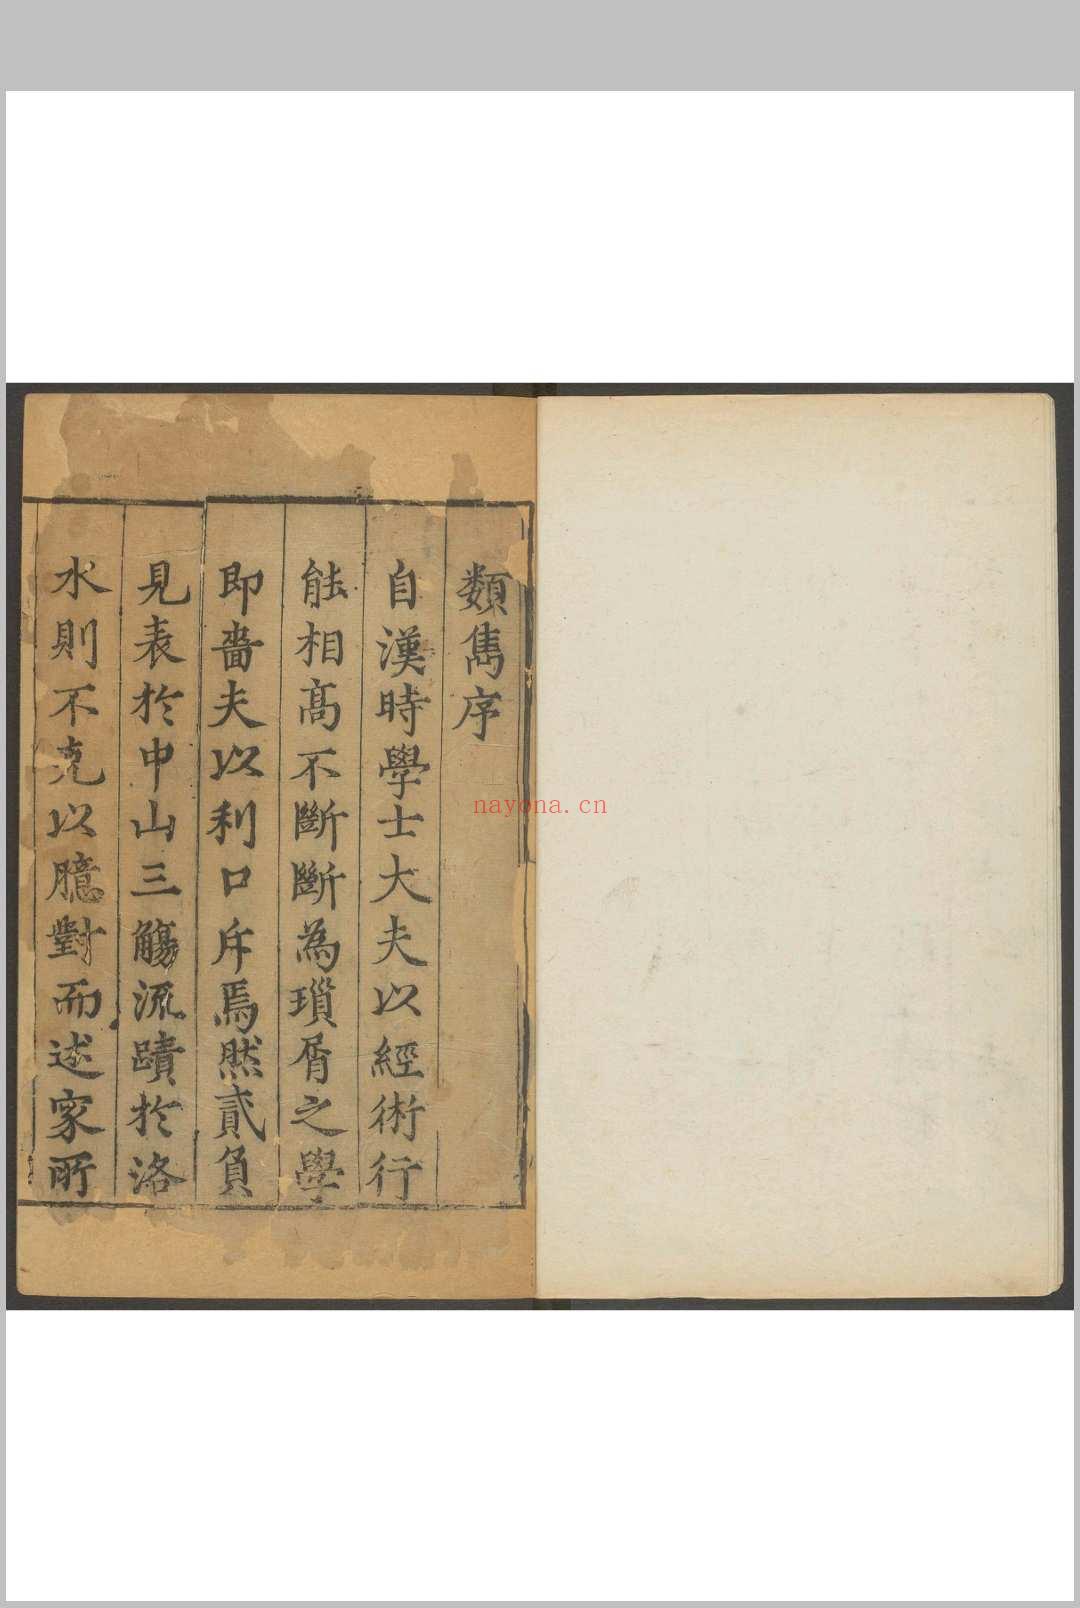 類雋序
自漢時學士大夫以經術行
能相高不斷斷為瑣屑之學
即嗇夫以利口斥焉然貳負
見表於中山三觴流蹟於洛
水則不克以臆對而述家所
nayona.cn